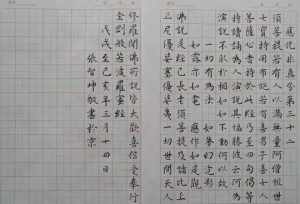 應化非真分第三十二
須菩提若有人以滿無量阿僧祇世
七寶持用布施若有善男子善女人
菩薩心者持於此經乃至四句偈等
持讀誦為人演說其福勝彼云何為
演說不取於相如如不動何以故
一切有為法 如夢幻泡影
如露亦如電 應作如是觀
佛說是經已長老須菩提及諸比丘
丘尼優婆塞優婆夷一切世間天人
修羅聞佛所說皆大歡喜信受奉行
金剛般若波羅蜜經
己亥年三月十四日
張智坤敬書於京